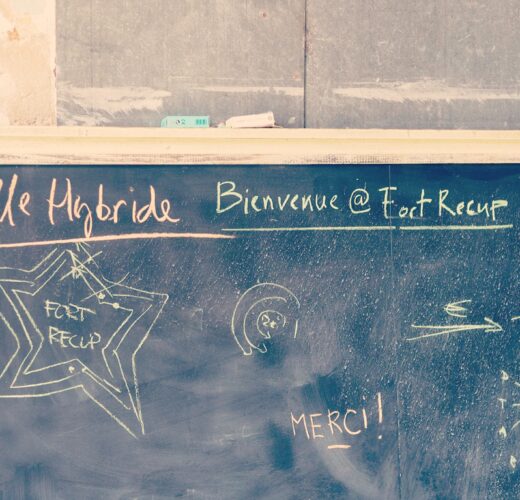 lle Hybride Bienvenue @ Fort Recup
FORT
RECUP
2€
€
MERCI!
D
T
A